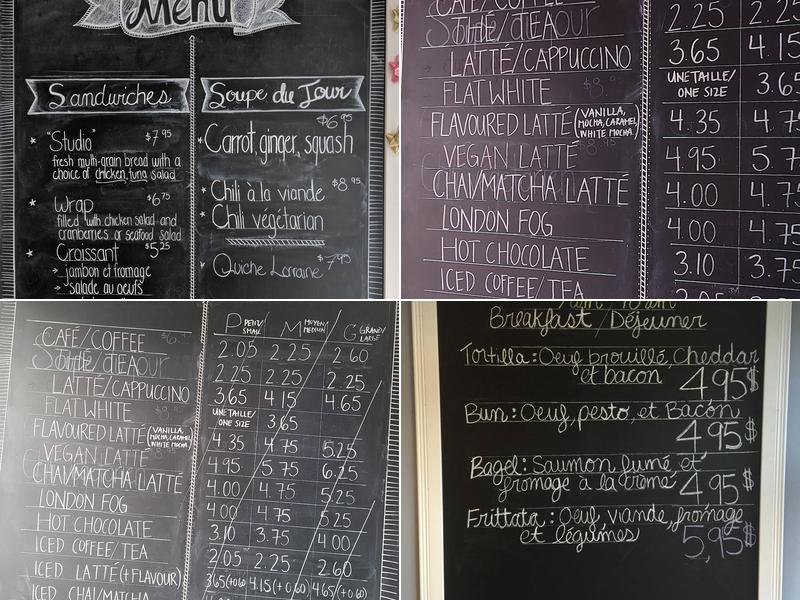 Menu
Sandwiches
"Studio" $7.95
fresh multi-grain bread with a
choice of chicken, tuna, salad
Wrap $6.75
filled with chicken salad and
cranberries or seafood salad
Croissant $5.25
→ jambon et fromage
→ salade au oeufs
Soupe du Jour
$6.95
Carrot, ginger, squash
Chili à la viande $8.95
Chili végétarian
Quiche Lorraine $7.95
CAFÉ/COFFEE
THÉ/TEA 2.25 2.25
LATTÉ/CAPPUCCINO 3.65 4.15
FLAT WHITE UNE TAILLE/ ONE SIZE 3.65
FLAVOURED LATTÉ (VANILLA, MOCHA, CARAMEL, WHITE MOCHA) 4.35 4.75
VEGAN LATTÉ 4.95 5.7
CHAI/MATCHA LATTÉ 4.00 4.75
LONDON FOG 4.00 4.75
HOT CHOCOLATE 3.10 3.75
ICED COFFEE/TEA
P PETIT/SMALL M MOYEN/MEDIUM G GRAND/LARGE
CAFÉ/COFFEE 2.05 2.25 2.60
THÉ/TEA 2.25 2.25 2.25
LATTÉ/CAPPUCCINO 3.65 4.15 4.65
FLAT WHITE UNE TAILLE/ ONE SIZE 3.65
FLAVOURED LATTÉ (VANILLA, MOCHA, CARAMEL, WHITE MOCHA) 4.35 4.75 5.25
VEGAN LATTÉ 4.95 5.75 6.25
CHAI/MATCHA LATTÉ 4.00 4.75 5.25
LONDON FOG 4.00 4.75 5.25
HOT CHOCOLATE 3.10 3.75 4.00
ICED COFFEE/TEA 2.05 2.25 2.60
ICED LATTÉ (+FLAVOUR) 3.65(+0.60) 4.15(+0.60) 4.65(+0.60)
ICED CHAI/MATCHA
Breakfast/Déjeuner
Tortilla: Oeuf brouillé, Cheddar
et bacon 4.95$
Bun: Oeuf, pesto, et Bacon
4.95$
Bagel: Saumon fumé et
fromage à la crème 4.95$
Frittata: Oeuf, viande, fromage
et légumes 5.95$